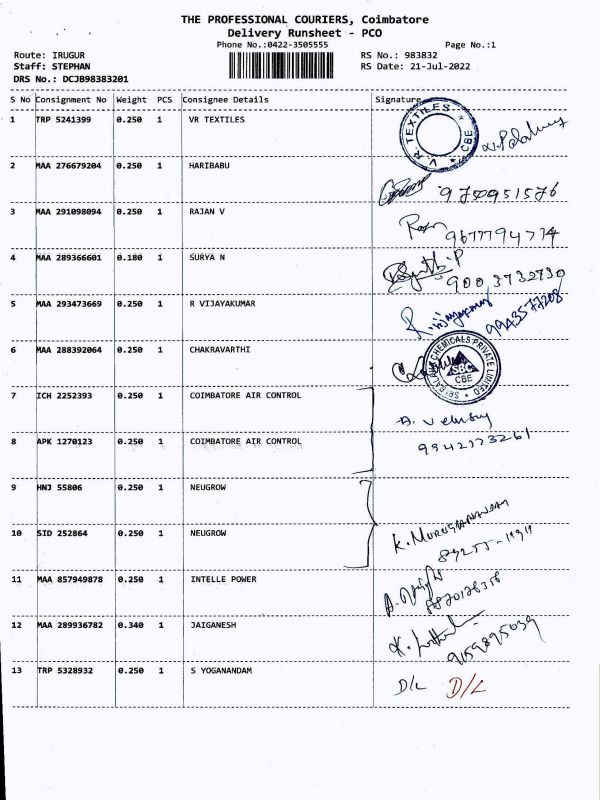 THE PROFESSIONAL COURIERS, Coimbatore
Delivery Runsheet - PCO
Phone No.:0422-3505555 Page No.:1
Route: IRUGUR RS No.: 983832
Staff: STEPHAN RS Date: 21-Jul-2022
DRS No.: DCJB98383201
S No Consignment No Weight PCS Consignee Details Signature
1 TRP 5241399 0.250 1 VR TEXTILES
V.R. TEXTILES CBE
2 MAA 276679204 0.250 1 HARIBABU
3 MAA 291098094 0.250 1 RAJAN V
9677794774
4 MAA 289366601 0.180 1 SURYA N
900 3732730
5 MAA 293473669 0.250 1 R VIJAYAKUMAR
R. Vijayakumar
6 MAA 288392064 0.250 1 CHAKRAVARTHI
CHEMICALS PRIVATE LIMITED SBC CBE
7 ICH 2252393 0.250 1 COIMBATORE AIR CONTROL
8 APK 1270123 0.250 1 COIMBATORE AIR CONTROL
9 HNJ 55806 0.250 1 NEUGROW
10 SID 252864 0.250 1 NEUGROW
11 MAA 857949878 0.250 1 INTELLE POWER
12 MAA 289936782 0.340 1 JAIGANESH
9159895039
13 TRP 5328932 0.250 1 S YOGANANDAM
D/L D/L